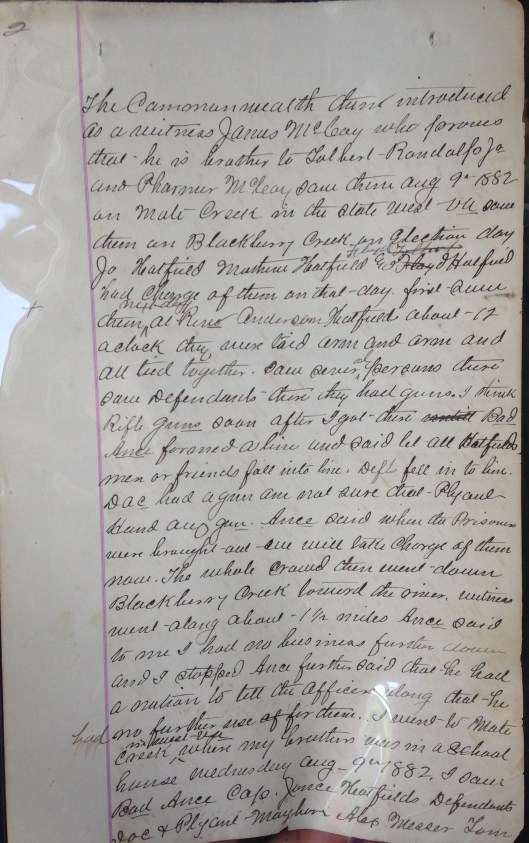 2
The Commonwealth then introduced
as a witness James McCoy who proves
that he is brother to Tolbert Randolfo Jr
and Pharmer McCoy saw them Aug 9th 1882
on Mate Creek in the state West Va saw
them on Blackberry Creek on Election day
Jo Hatfield Matthew Hatfield & Floyd Hatfield
had Charge of them on that day. first saw
next day
them at Anderson Hatfields about 12
aclock they were tied arm and arm and
all tied together. Saw several persons there
saw Defendants there they had guns. I think
Rifle guns soon after I got there untill Bad
Ance formed a line and said let all Hatfields
men or friends fall into line. Deft fell in to line.
Doc had a gun am not sure that Plyant
Hand any gun. Ance said when the Prisoners
were brought out we will take Charge of them
now. The whole crowd then went down
Blackberry Creek toward the river. witness
went along about 1 1/2 miles Ance said
to me I had no business further down
and I stopped Ance further said that he had
a notion to tell the Officers along that he
had no further use of for them. I went to Mate
in West Va
Creek, where my brothers was in a School
house Wednesday Aug 9th 1882. I saw
Bad Ance Cap. Jonce Hatfields Defendants
Doc & Plyant Mayhorn Alex Messer Tom